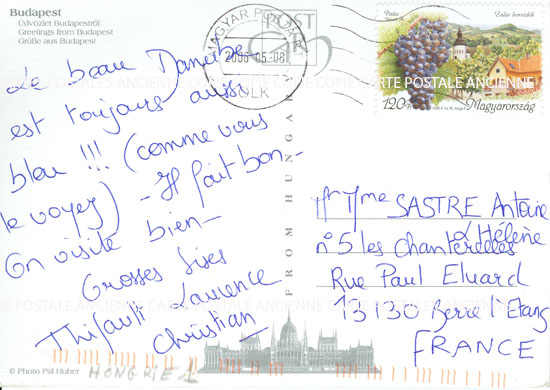 Budapest
Üdvözlet Budapestről
Greetings from Budapest
Grüße aus Budapest
Le beau Danube
est toujours aussi
bleu !!! (comme vous
le voyez) - Il fait bon -
On visite bien -
Grosses bises
Thifault Laurence
Christian
© Photo Pál Huber
HONGRIE 1
FROM HUNGARY
MAGYAR POSTA
POST
2006 -05- 08
Posta
Magyarország
120Ft
Mr Mme SASTRE Antoine
& Hélène
n°5 les Chanterelles
Rue Paul Eluard
13130 Berre l'Etang
FRANCE
CARTE POSTALE ANCIENNE